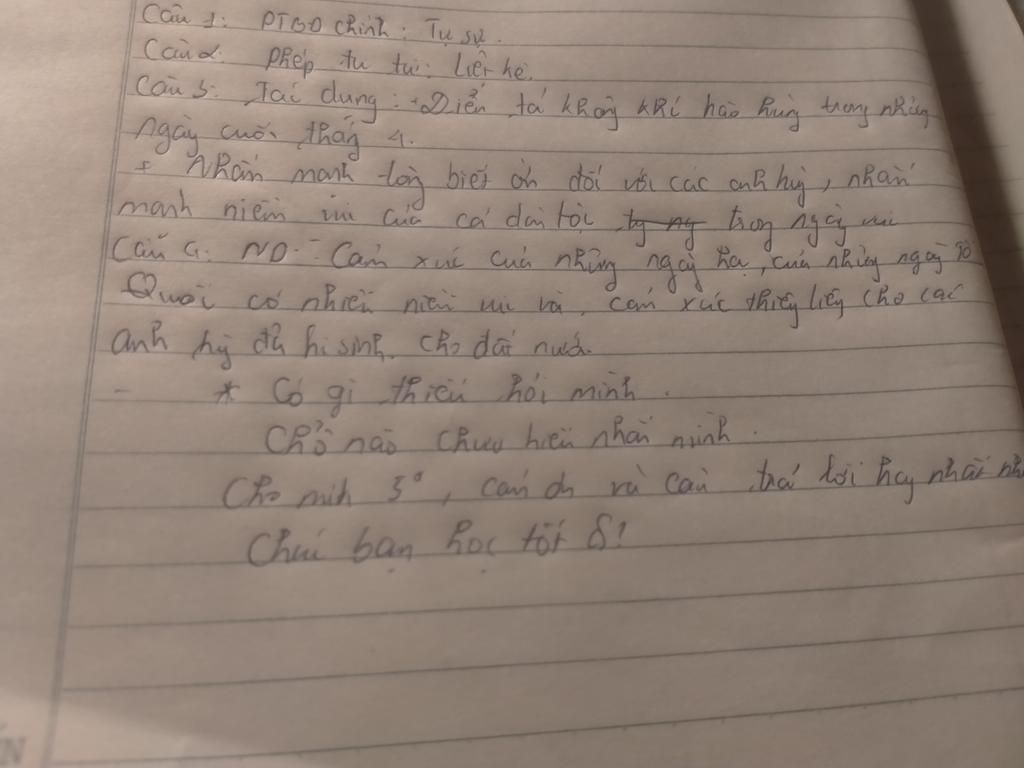 Câu 1: PTBĐ chính: Tự sự.
Câu 2: Phép tu từ: Liệt kê.
Câu 3: Tác dụng: +Diễn tả không khí hào hùng trong những
ngày cuối tháng 4.
+ Nhấn mạnh lòng biết ơn đối với các anh hùng, nhấn
mạnh niềm vui của cả dân tộc trong ngày vui
Câu 4: ND: - Cảm xúc của những ngày hạ, của những ngày
Quốc có nhiều niềm vui và cảm xúc thiêng liêng cho các
anh hùng đã hi sinh cho đất nước.
- * Có gì thiếu hỏi mình.
Chỗ nào chưa hiểu nhắn mình.
Cho mình 5*, cảm ơn và câu trả lời hay nhất
Chúc bạn học tốt